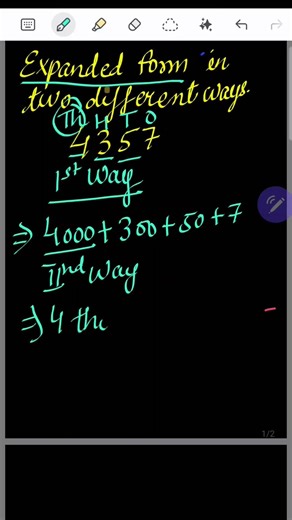 Expanded form in
two different ways.
Th H T O
4357
1st Way
⇒ 4000+300+50+7
IInd Way
⇒ 4 tho
1/2